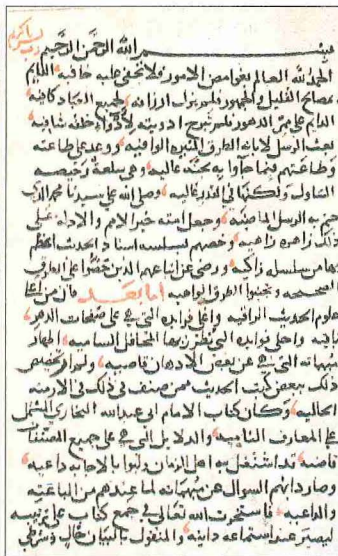 بسم الله الرحمن الرحيم
الحمد لله العالم بغوامض الامور فلا تخفى عليه خافيه القايم
بمصالح القليل والجمهور فلم يزل الرزاقه لجميع العباد كافيه
الدايم على ممر الدهور فلم تبرح ادويته لأدواء خلقه شافيه
لعث الرسل لابانه الطرق المنيره الوافيه ووعد على طاعته
وطاعتهم فيما جاوا به بجنه عاليه وهي سلعة رخيصه
التناول ولكنها في القدر غاليه وصلى الله على سيدنا محمد الذي
ختم به الرسل الماضيه وجعل امته خير الامم والادله على
ذلك زاهره زاهيه وخصهم بسلسله اسناد الحديث المعظم
من سلسله زاكيه ورضي عن اتباعهم الذين حضوا على الطرق
الصحيحه وتجنبوا الطرق الواهيه اما بعد فان من اعلا
علوم الحديث الراقيه واغلى فوايده التي هي على صفحات الدهر
باقيه واحلى فوايده التي تطرز بها المحافل الساميه
مبهماته التي هي عن بعض الاذهان قاصيه ولم ار تخصيص
ذلك ببعض كتب الحديث ممن صنف في ذلك في الازمنه
الخاليه وكان كتاب الامام ابي عبدالله البخاري المشتمل
على المعارف الناميه والدلايل التي هي على جميع المصنفات
قاضيه قد اشتغل به اهل الزمان ولبوا بالاجابه داعيه
وصار دابهم السوال عن مبهماته لما عندهم من الباعثه
والداعيه فاستخرت الله تعالى في جمع كتاب على ترتيبه
ليصير عند استماعه دانيه والمنقول بالبيان حال وشرطي